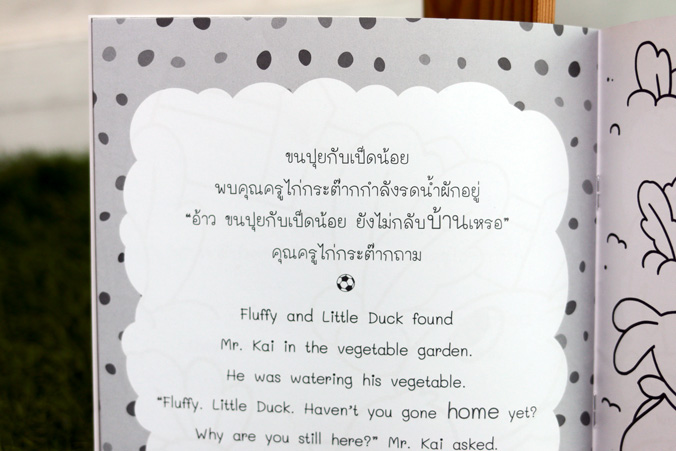 ขนปุยกับเป็ดน้อย
พบคุณครูไก่กระต๊ากกำลังรดน้ำผักอยู่
“อ้าว ขนปุยกับเป็ดน้อย ยังไม่กลับบ้านเหรอ”
คุณครูไก่กระต๊ากถาม
Fluffy and Little Duck found
Mr. Kai in the vegetable garden.
He was watering his vegetable.
“Fluffy. Little Duck. Haven't you gone home yet?
Why are you still here?” Mr. Kai asked.